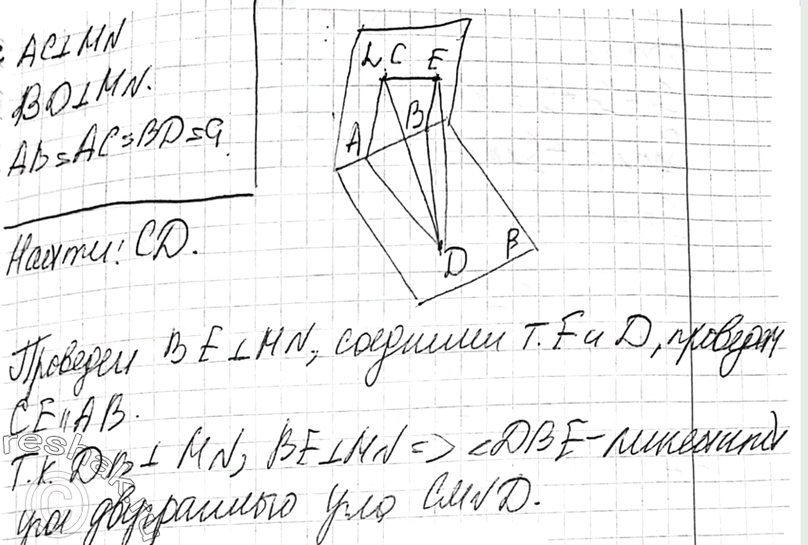 AC⊥MN
BD⊥MN.
AB=AC=BD=a.
Найти: CD.
L C E
A B
D B
Проведем BE⊥MN, соединим т. E и D, проведем
CE || AB.
Т.к. DB⊥MN, BE⊥MN => ∠DBE - линейный
угол двугранного угла CMND.
reshak